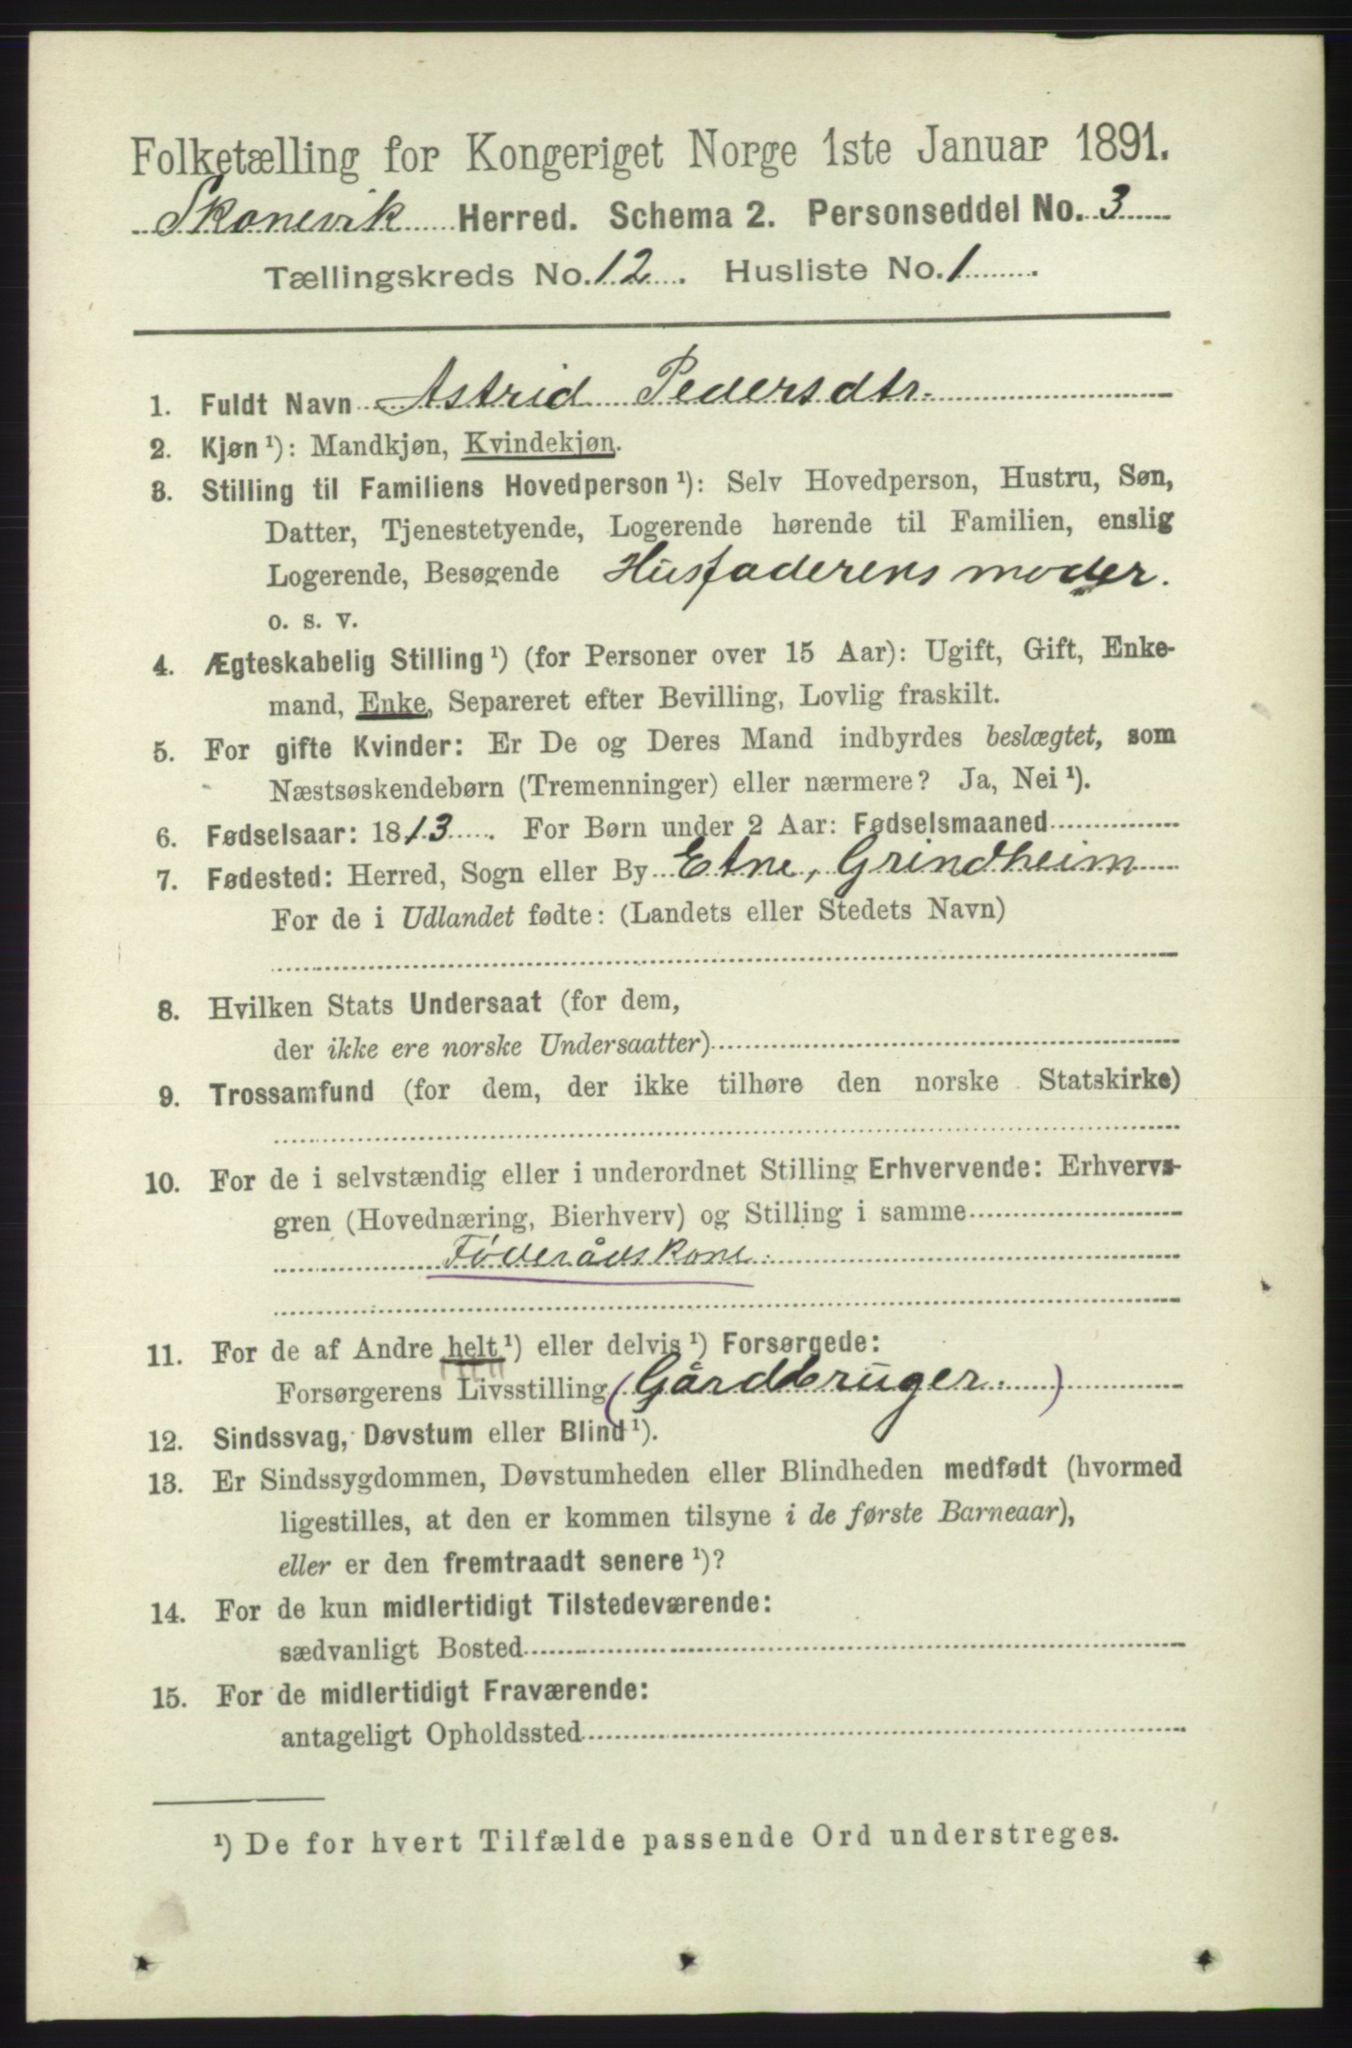 Folketælling for Kongeriget Norge 1ste Januar 1891.
Skonevik Herred. Schema 2. Personseddel No. 3
Tællingskreds No. 12. Husliste No. 1
1. Fuldt Navn Astrid Pedersdtr.
2. Kjøn ¹): Mandkjøn, Kvindekjøn.
3. Stilling til Familiens Hovedperson ¹): Selv Hovedperson, Hustru, Søn,
Datter, Tjenestetyende, Logerende hørende til Familien, enslig
Logerende, Besøgende Husfaderens moder.
o. s. v.
4. Ægteskabelig Stilling ¹) (for Personer over 15 Aar): Ugift, Gift, Enke-
mand, Enke, Separeret efter Bevilling, Lovlig fraskilt.
5. For gifte Kvinder: Er De og Deres Mand indbyrdes beslægtet, som
Næstsøskendebørn (Tremenninger) eller nærmere? Ja, Nei ¹).
6. Fødselsaar: 1813. For Børn under 2 Aar: Fødselsmaaned
7. Fødested: Herred, Sogn eller By Etne, Grindheim
For de i Udlandet fødte: (Landets eller Stedets Navn)
8. Hvilken Stats Undersaat (for dem,
der ikke ere norske Undersaatter)
9. Trossamfund (for dem, der ikke tilhøre den norske Statskirke)
10. For de i selvstændig eller i underordnet Stilling Erhvervende: Erhvervs-
gren (Hovednæring, Bierhverv) og Stilling i samme
Føderådskone.
11. For de af Andre helt ¹) eller delvis ¹) Forsørgede:
Forsørgerens Livsstilling (Gårdbruger.)
12. Sindssvag, Døvstum eller Blind ¹).
13. Er Sindssygdommen, Døvstumheden eller Blindheden medfødt (hvormed
ligestilles, at den er kommen tilsyne i de første Barneaar),
eller er den fremtraadt senere ¹)?
14. For de kun midlertidigt Tilstedeværende:
sædvanligt Bosted
15. For de midlertidigt Fraværende:
antageligt Opholdssted
¹) De for hvert Tilfælde passende Ord understreges.